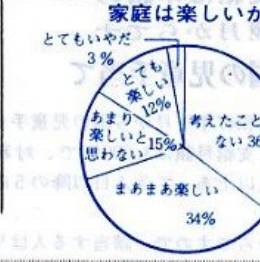 家庭は楽しいか
とてもいやだ
3%
とても
楽しい
12%
あまり
楽しいと
思わない
15%
考えたこと
ない 36
まあまあ楽しい
34%